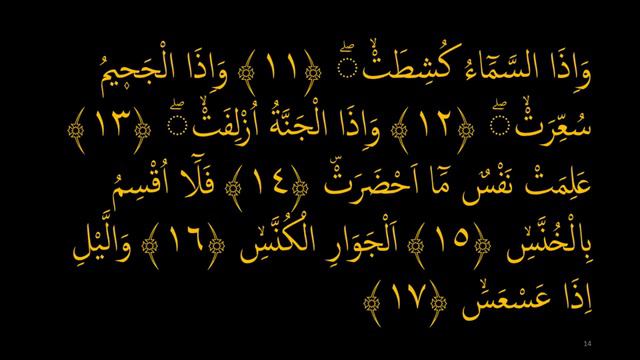 وَاِذَا السَّمَآءُ كُشِطَتْۙ ۖ ﴿١١﴾ وَاِذَا الْجَحِيْمُ
سُعِّرَتْۙ ۖ ﴿١٢﴾ وَاِذَا الْجَنَّةُ اُزْلِفَتْۙ ۖ ﴿١٣﴾
عَلِمَتْ نَفْسٌ مَّاۤ اَحْضَرَتْؕ ﴿١٤﴾ فَلَاۤ اُقْسِمُ
بِالْخُنَّسِۙ ﴿١٥﴾ الْجَوَارِ الْكُنَّسِۙ ﴿١٦﴾ وَالَّيْلِ
اِذَا عَسْعَسَۙ ﴿١٧﴾
14